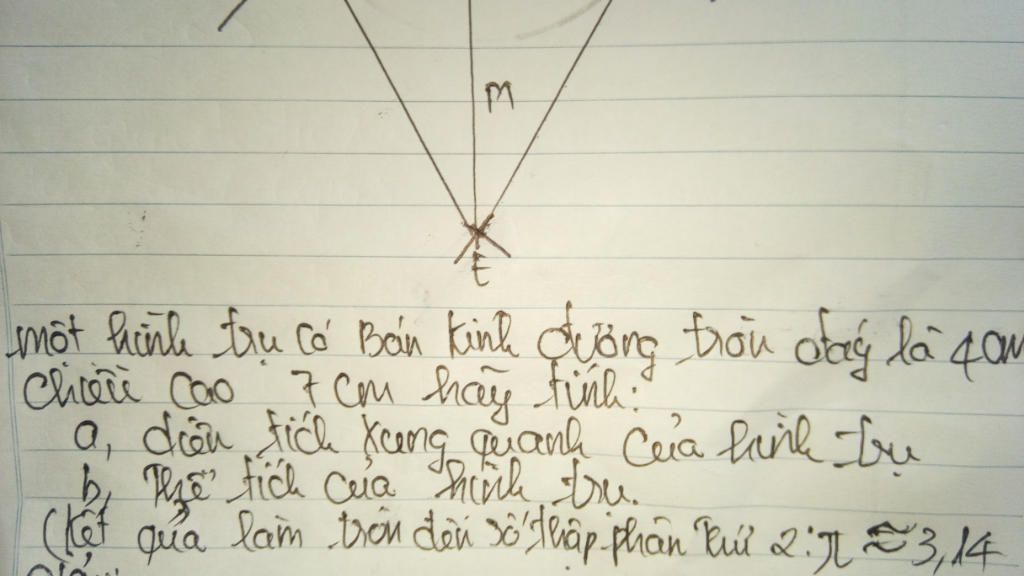 M
E
một hình trụ có Bán kính đường tròn đáy là 4cm
chiều cao 7 cm hãy tính:
a, diện tích xung quanh của hình trụ
b, Thể tích của hình trụ.
(kết quả làm tròn đến số thập phân thứ 2: π ≈ 3,14